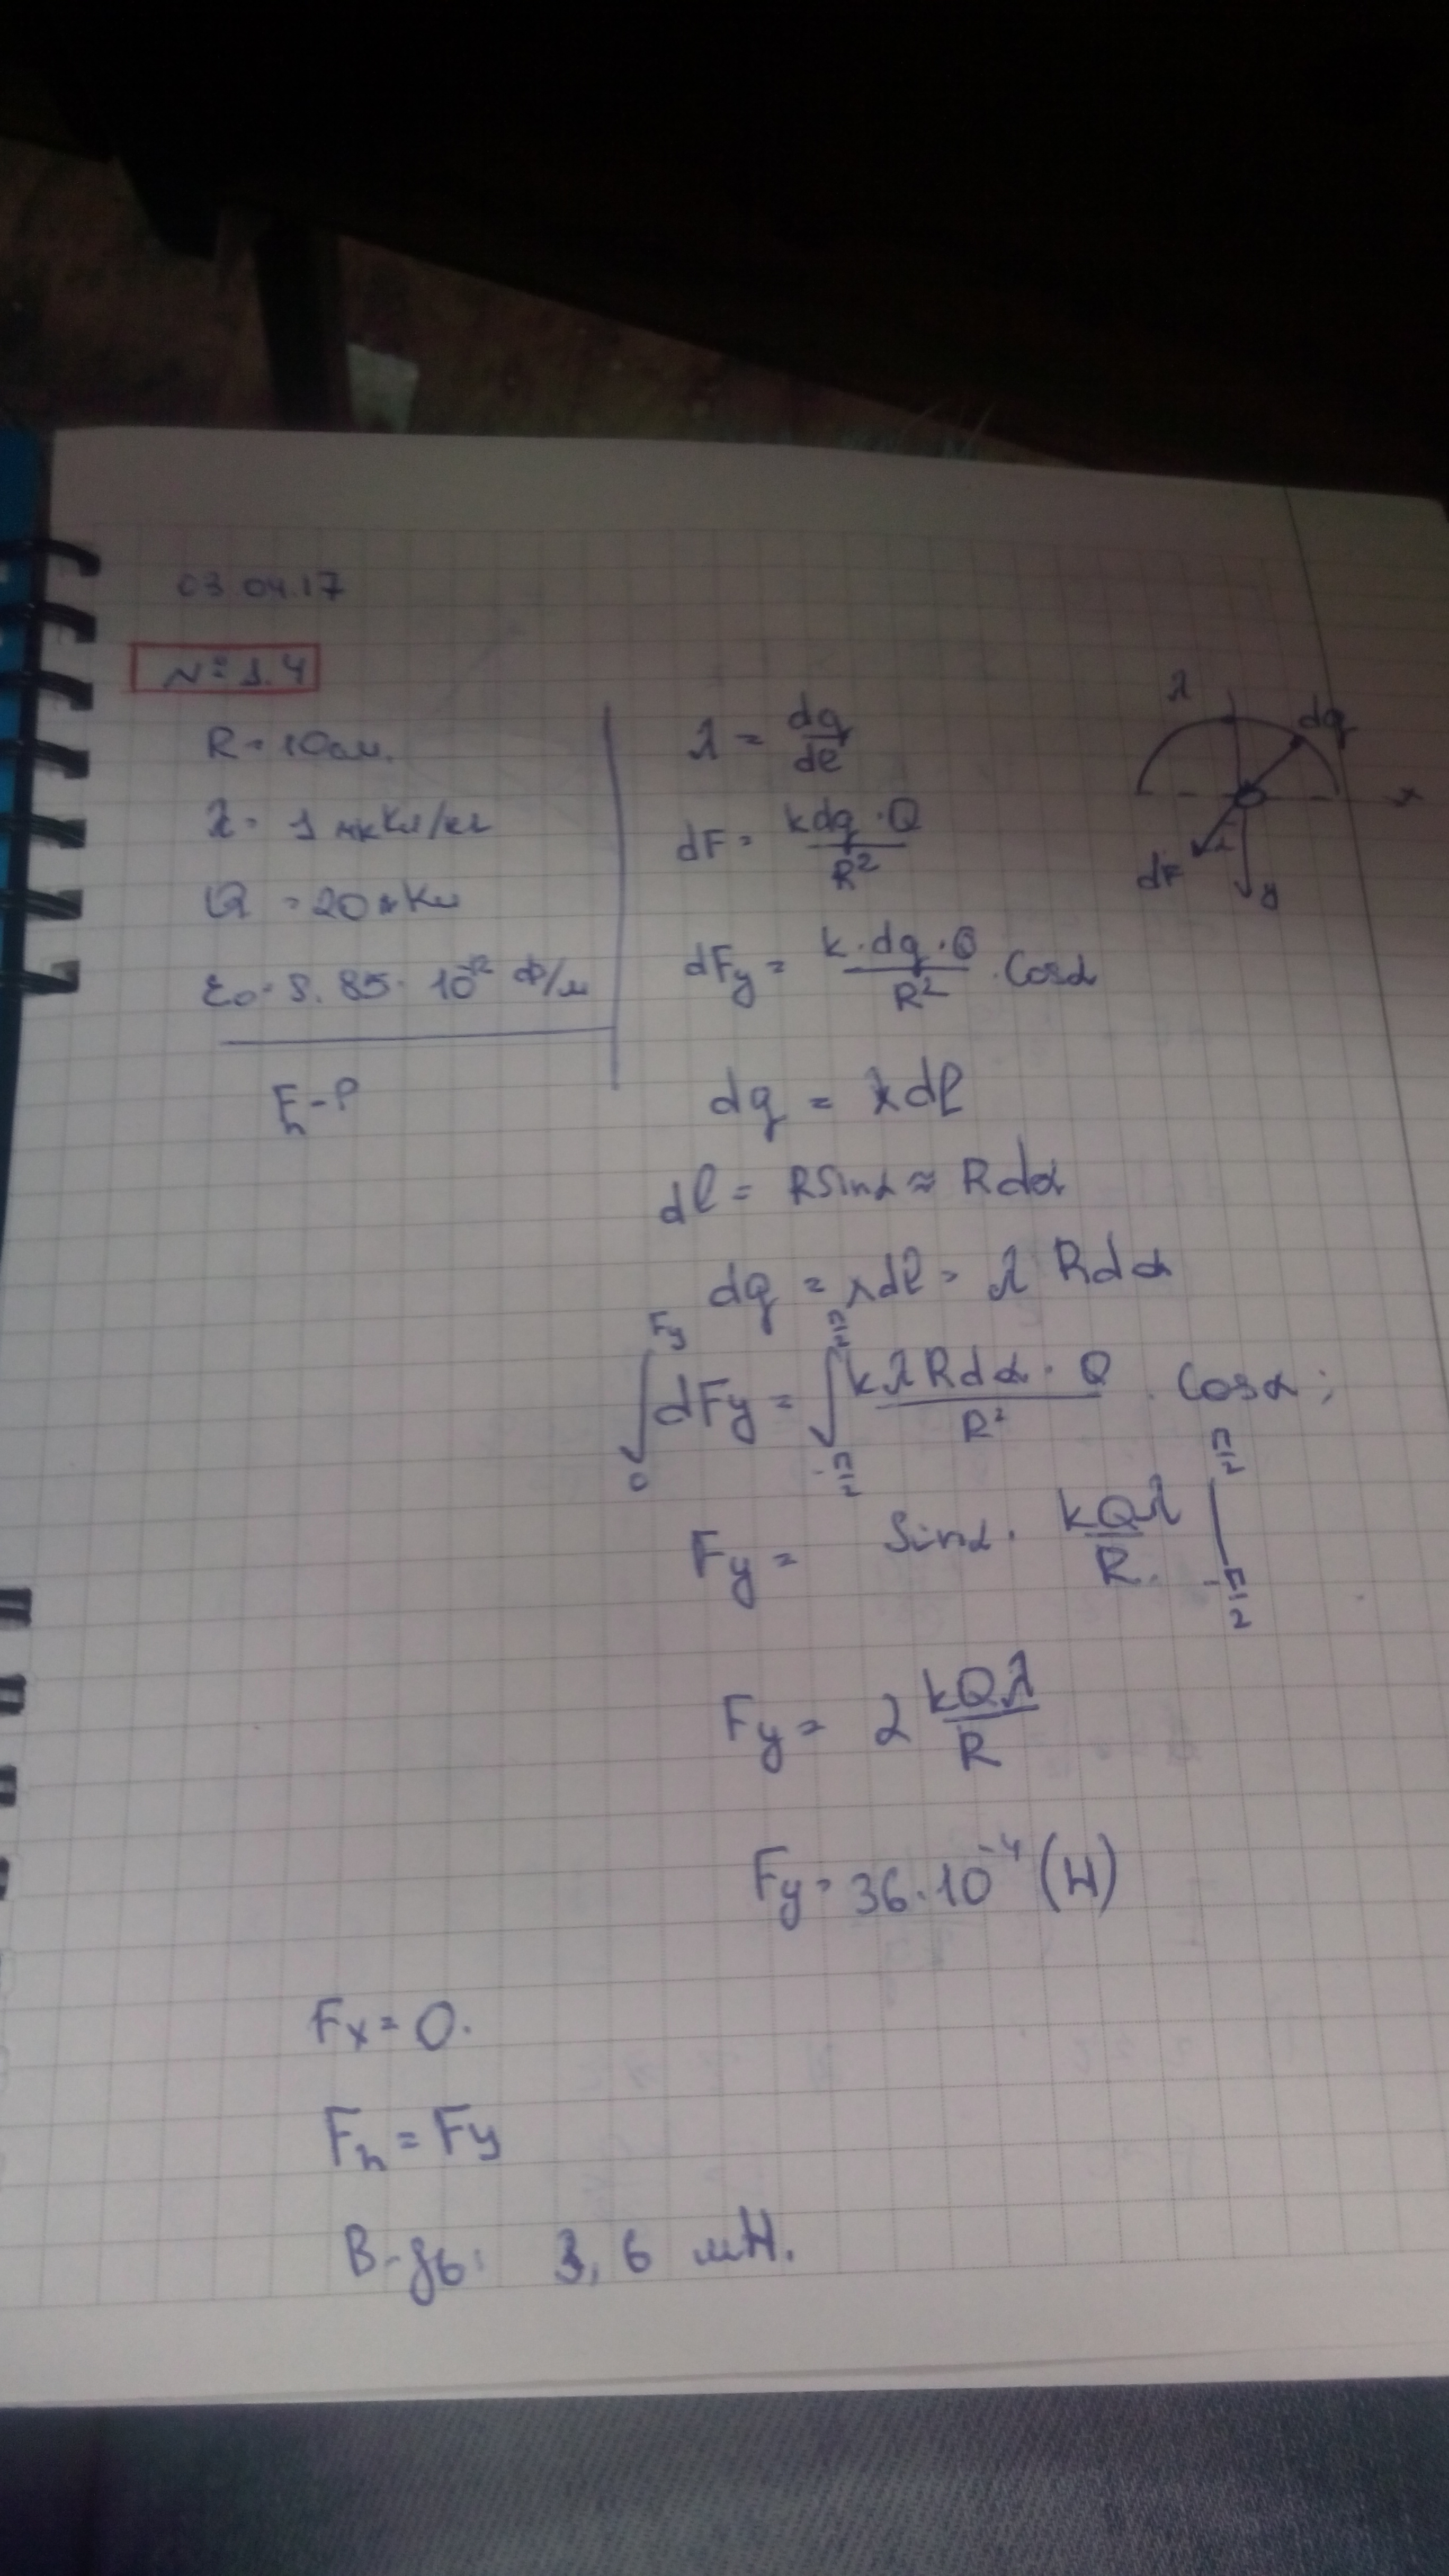 03.04.17
№ 1.4
R = 10 см.
λ = 1 мкКл/м
Q = 20 нКл
ε₀ = 8.85 · 10⁻¹² Ф/м
Fₙ - ?
λ = dq/dl
dF = kdq · Q / R²
dFy = k · dq · Q / R² · Cosα
dq = λdl
dl = RSinα ≈ Rdα
dq = λdl = λ Rdα
∫₀^Fy dFy = ∫_{-π/2}^{π/2} kλRdα · Q / R² · Cosα ;
Fy = Sinα · kQλ / R. |_{-π/2}^{π/2}
Fy = 2 kQλ / R
Fy = 36 · 10⁻⁴ (Н)
Fx = 0.
Fₙ = Fy
В-дь: 3,6 мН.
λ
dq
x
dF
α
y